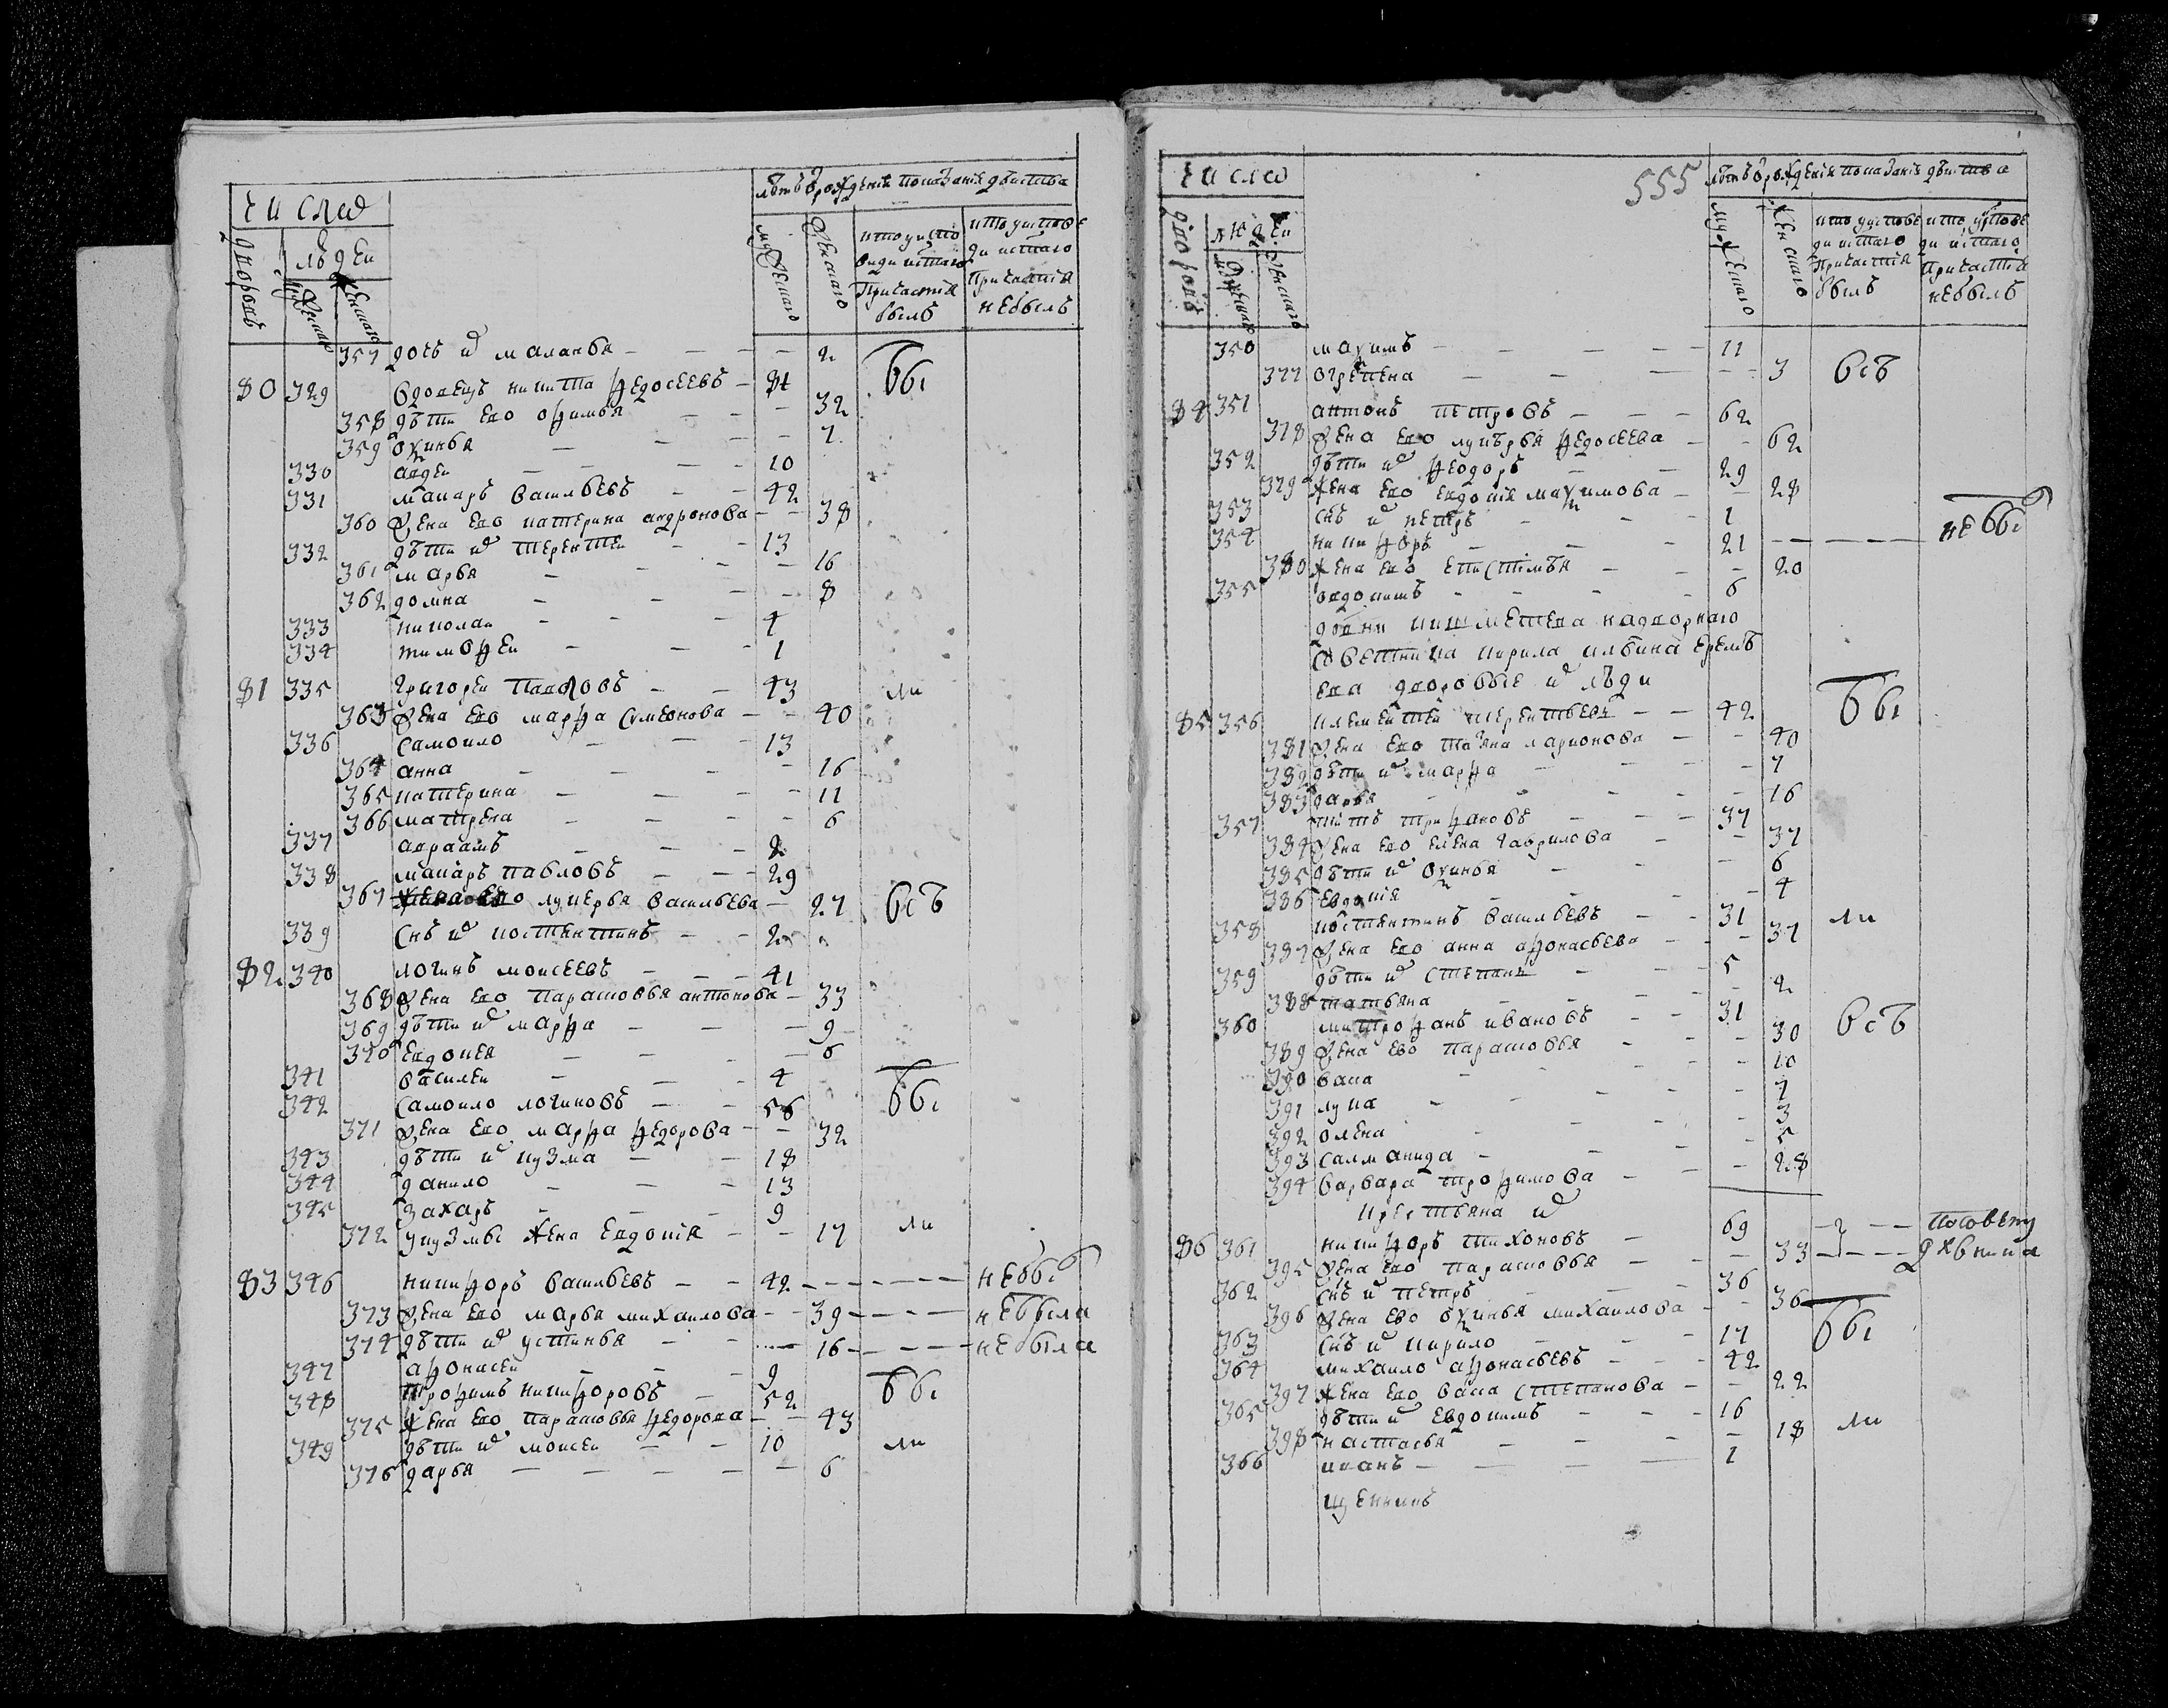 число
дворовъ
людеи
мужеска
женска
лѣтъ ѿ рожденія показанія дѣиства
мужеска
женскаго
кто у исповиди и с̃таго причастія былъ
кто у исповѣди и с̃таго причастія небылъ
357 дочь их маланья — — — 2
80 329 вдовецъ никита ѳедосеевъ — 81
358 дѣти ево офимья — — — 32
359 оксинья — — — 7
330 авдеи — — — 10
331 макаръ васильевъ — — 42
360 жена ево катерина андронова — — 38
332 дѣти их терентеи — — 13
361 марья — — — 16
362 домна — — — 8
333 николаи — — — 4
334 тимофеи — — — 1
81 335 григореи павловъ — — 43
363 жена ево марфа сумеонова — — 40
336 самоило — — 13
364 анна — — — 16
365 катерина — — — 11
366 матрена — — — 6
337 авраамъ — — — 2
338 макаръ павловъ — — 29
367 жена ево лукерья васильева — 27
339 снъ их костентинъ — — 2
82 340 логинъ моисеевъ — — — 41
368 жена ево парасковья антонова — 33
369 дѣти их марфа — — — 9
370 евдокея — — — 6
341 василеи — — — 4
342 самоило логиновъ — — 56
371 жена ево марфа ѳедорова — — 32
343 дѣти их кузма — — 18
344 данило — — — 13
345 захаръ — — — 9
372 у кузмы жена евдокія — — 17
83 346 никифоръ васильевъ — — 42 — — — — небы
373 жена ево марья михаилова — — 39 — — — небыла
374 дѣти их устинья — — — 16 — — — небыла
347 афонасеи — — — 9
348 трофимъ никифоровъ — 52
375 жена ево парасковья ѳедорова — — 43
349 дѣти их моисеи — — 10
376 дарья — — — — — 6
бы
ли
всѣ
бы
ли
бы
ли
555
число
дворовъ
людеи
мужеска
женскаго
лѣтъ ѿ рожденія показанія дѣиства
мужескаго
женскаго
кто у исповеди и с̃таго причастія былъ
кто у исповеди и с̃таго причастія небылъ
350 максимъ — — — — 11
377 огрепена — — — — — 3 всѣ
84 351 антонъ петровъ — — — 62
378 жена ево лукѣрья ѳедосеева — — 62
352 дѣти их ѳеодоръ — — 29
379 жена ево евдокія максимова — — 28
353 снъ их петръ — — — 1
354 никифоръ — — — 21 — — — — небы
380 жена ево епистимья — — — 20
355 овдокимъ — — — — 6
надворнаго
советника кирила ильина еремѣ
ева дворовые их люди
85 356 клементеи терентьевъ — — 42
381 жена ево татьяна ларионова — — 40
382 дѣти их марфа — — — 7
383 дарья — — — 16
357 титъ трифановъ — — — 37
384 жена ево елена гаврилова — 37
385 дѣти их оксинья — — 6
386 евдокія — — — 4
358 костянтинъ васильевъ — — 31
387 жена ево анна афонасьева — — — 37
359 дѣти их степанъ — — — 5
388 татьяна — — — 2
360 митрофанъ ивановъ — — 31
389 жена ево парасковья — — — 30
390 васа — — — 10
391 лука — — — 7
392 олена — — — 3
393 саламанида — — — 5
394 варвара трофимова — — — 28
крестьяна их
86 361 никифоръ тихоновъ — 69
395 жена ево парасковья — — — 33
362 снъ их петръ — — 36
396 жена ево оксинья михаилова — — 36
363 снъ их кирило — — — 17
364 михаило афонасьевъ — — — 42
397 жена ево васа степанова — — 22
365 дѣти их евдокимъ — — — 16
398 настасья — — — — 18
366 иванъ — — — — 1
бы
ли
всѣ
по совету
дхвника
бы
ли
щенникъ